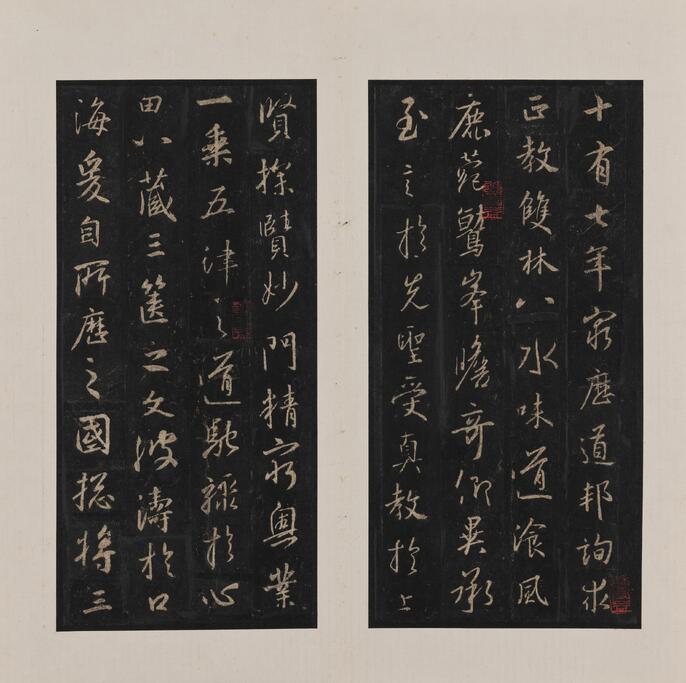 十有七年窮歷道邦詢求
正教雙林八水味道湌風
鹿菀鷲峯瞻奇仰異承
至言於先聖受真教於上
賢探賾妙門精窮奧業
一乘五律之道馳驟於心
田八藏三篋之文波濤於口
海爰自所歷之國揔將三